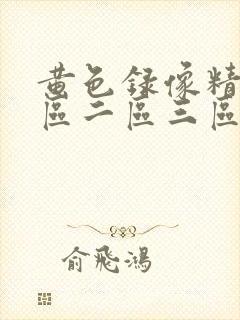 黃色錄像精
區二區三區
俞飛鴻